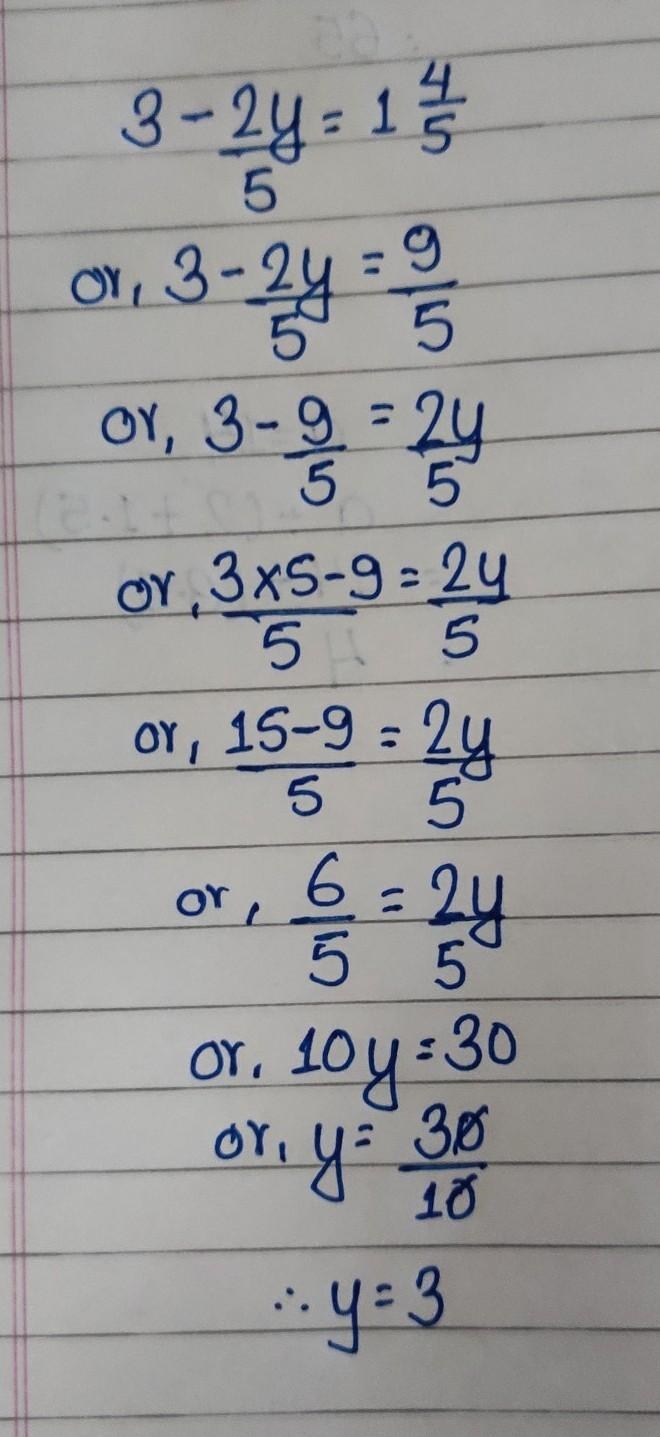 3 - 2y/5 = 1 4/5
or, 3 - 2y/5 = 9/5
or, 3 - 9/5 = 2y/5
or, 3×5-9/5 = 2y/5
or, 15-9/5 = 2y/5
or, 6/5 = 2y/5
or, 10y = 30
or, y = 30/10
∴ y = 3